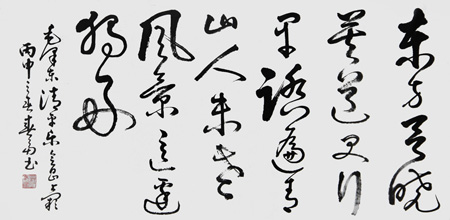 东方欲晓
莫道君行
早踏遍青
山人未老
风景这边
独好
毛泽东清平乐会昌
丙申之春书